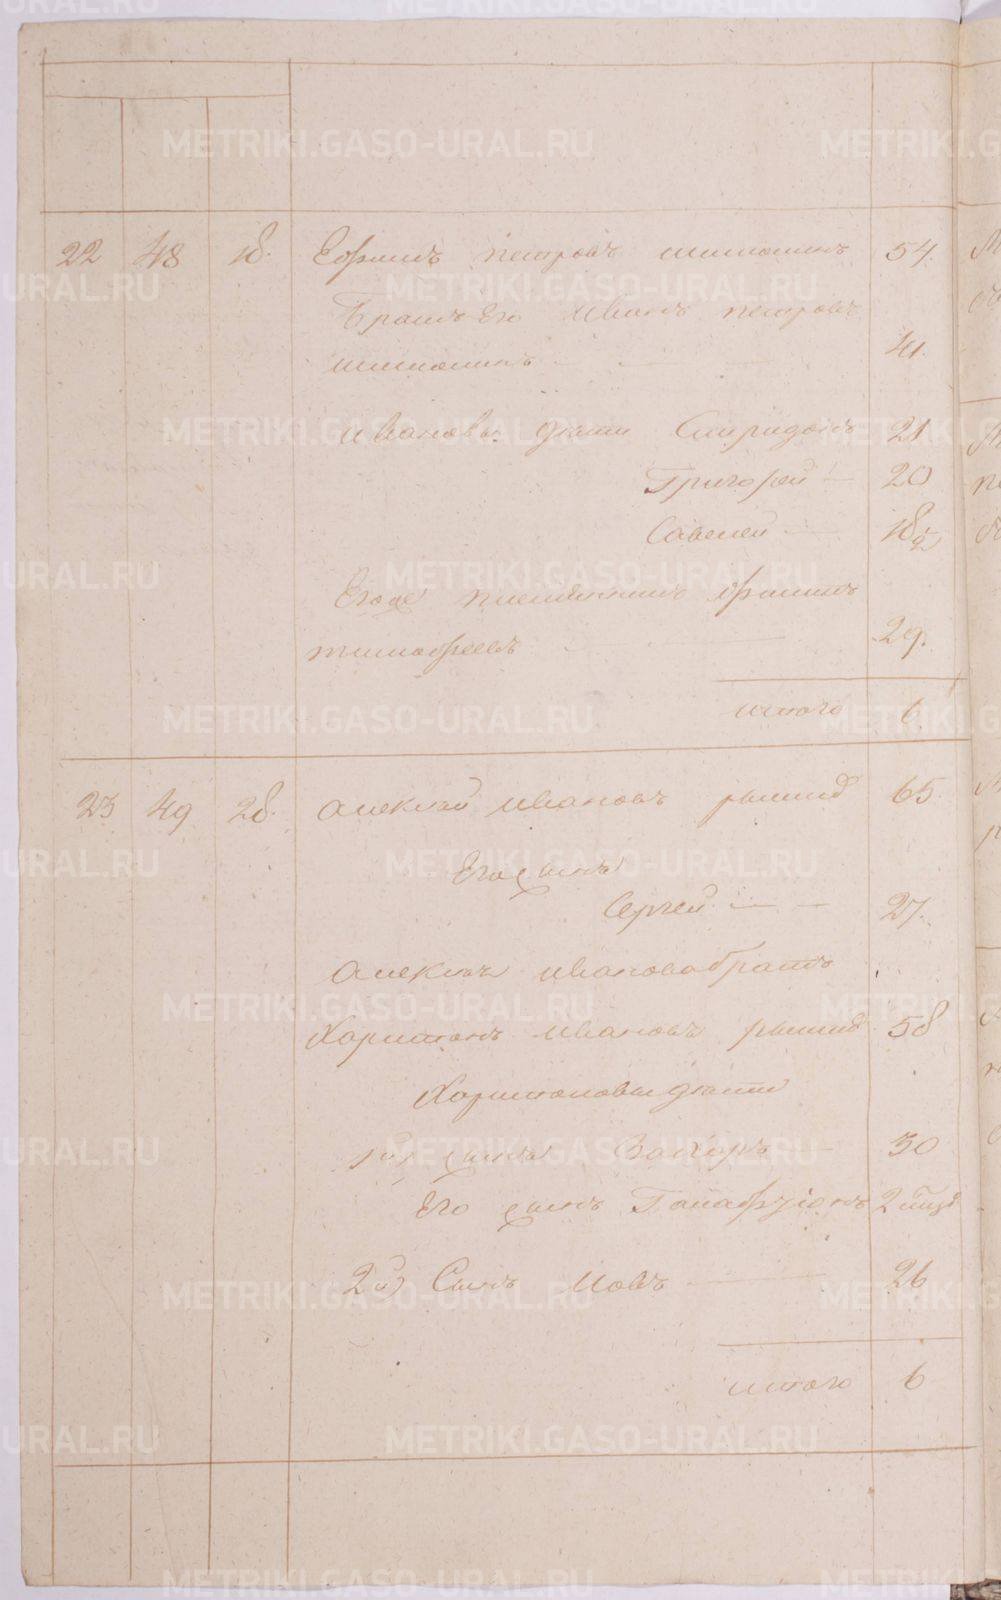 22 48 18. Ефимъ петровъ шимолинъ 54.
Братъ Его Иванъ петровъ
шимолинъ 41.
Ивановы дѣти Спиридонъ 21
Григорей 20
Савелей 18½
Егоже племянникъ ефимъ
тимофеевъ 29.
итого 6
23 49 28. Алексѣй Ивановъ 65.
Его сынъ
Сергей 27.
Алексѣя Иванова братъ
Харитонъ Ивановъ 58
Харитоновы дѣти
1й) сынъ 30
Его сынъ 2
2й) Сынъ Иовъ 26
итого 6
METRIKI.GASO-URAL.RU